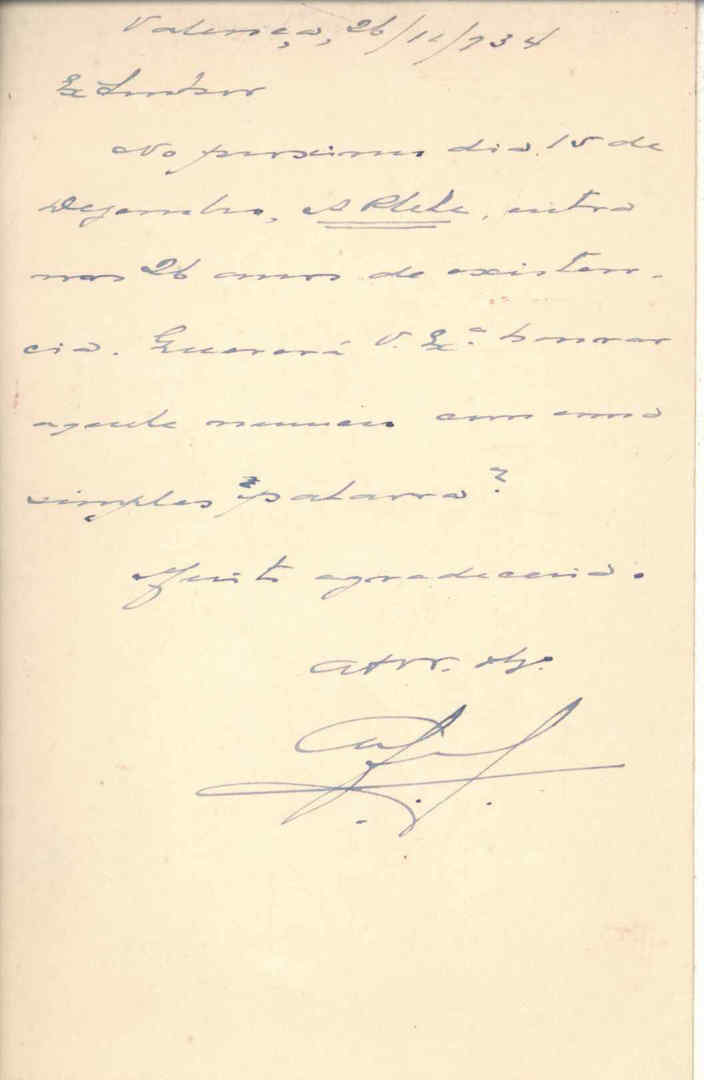 Valença, 26/11/934
Ex Senhor
No proximo dia 15 de
Dezembro, A Plebe, entra
nos 26 anos de existen-
cia. Quererá V. Exª honrar
aquele numero com uma
simples "palavra"?
Muito agradeceria.